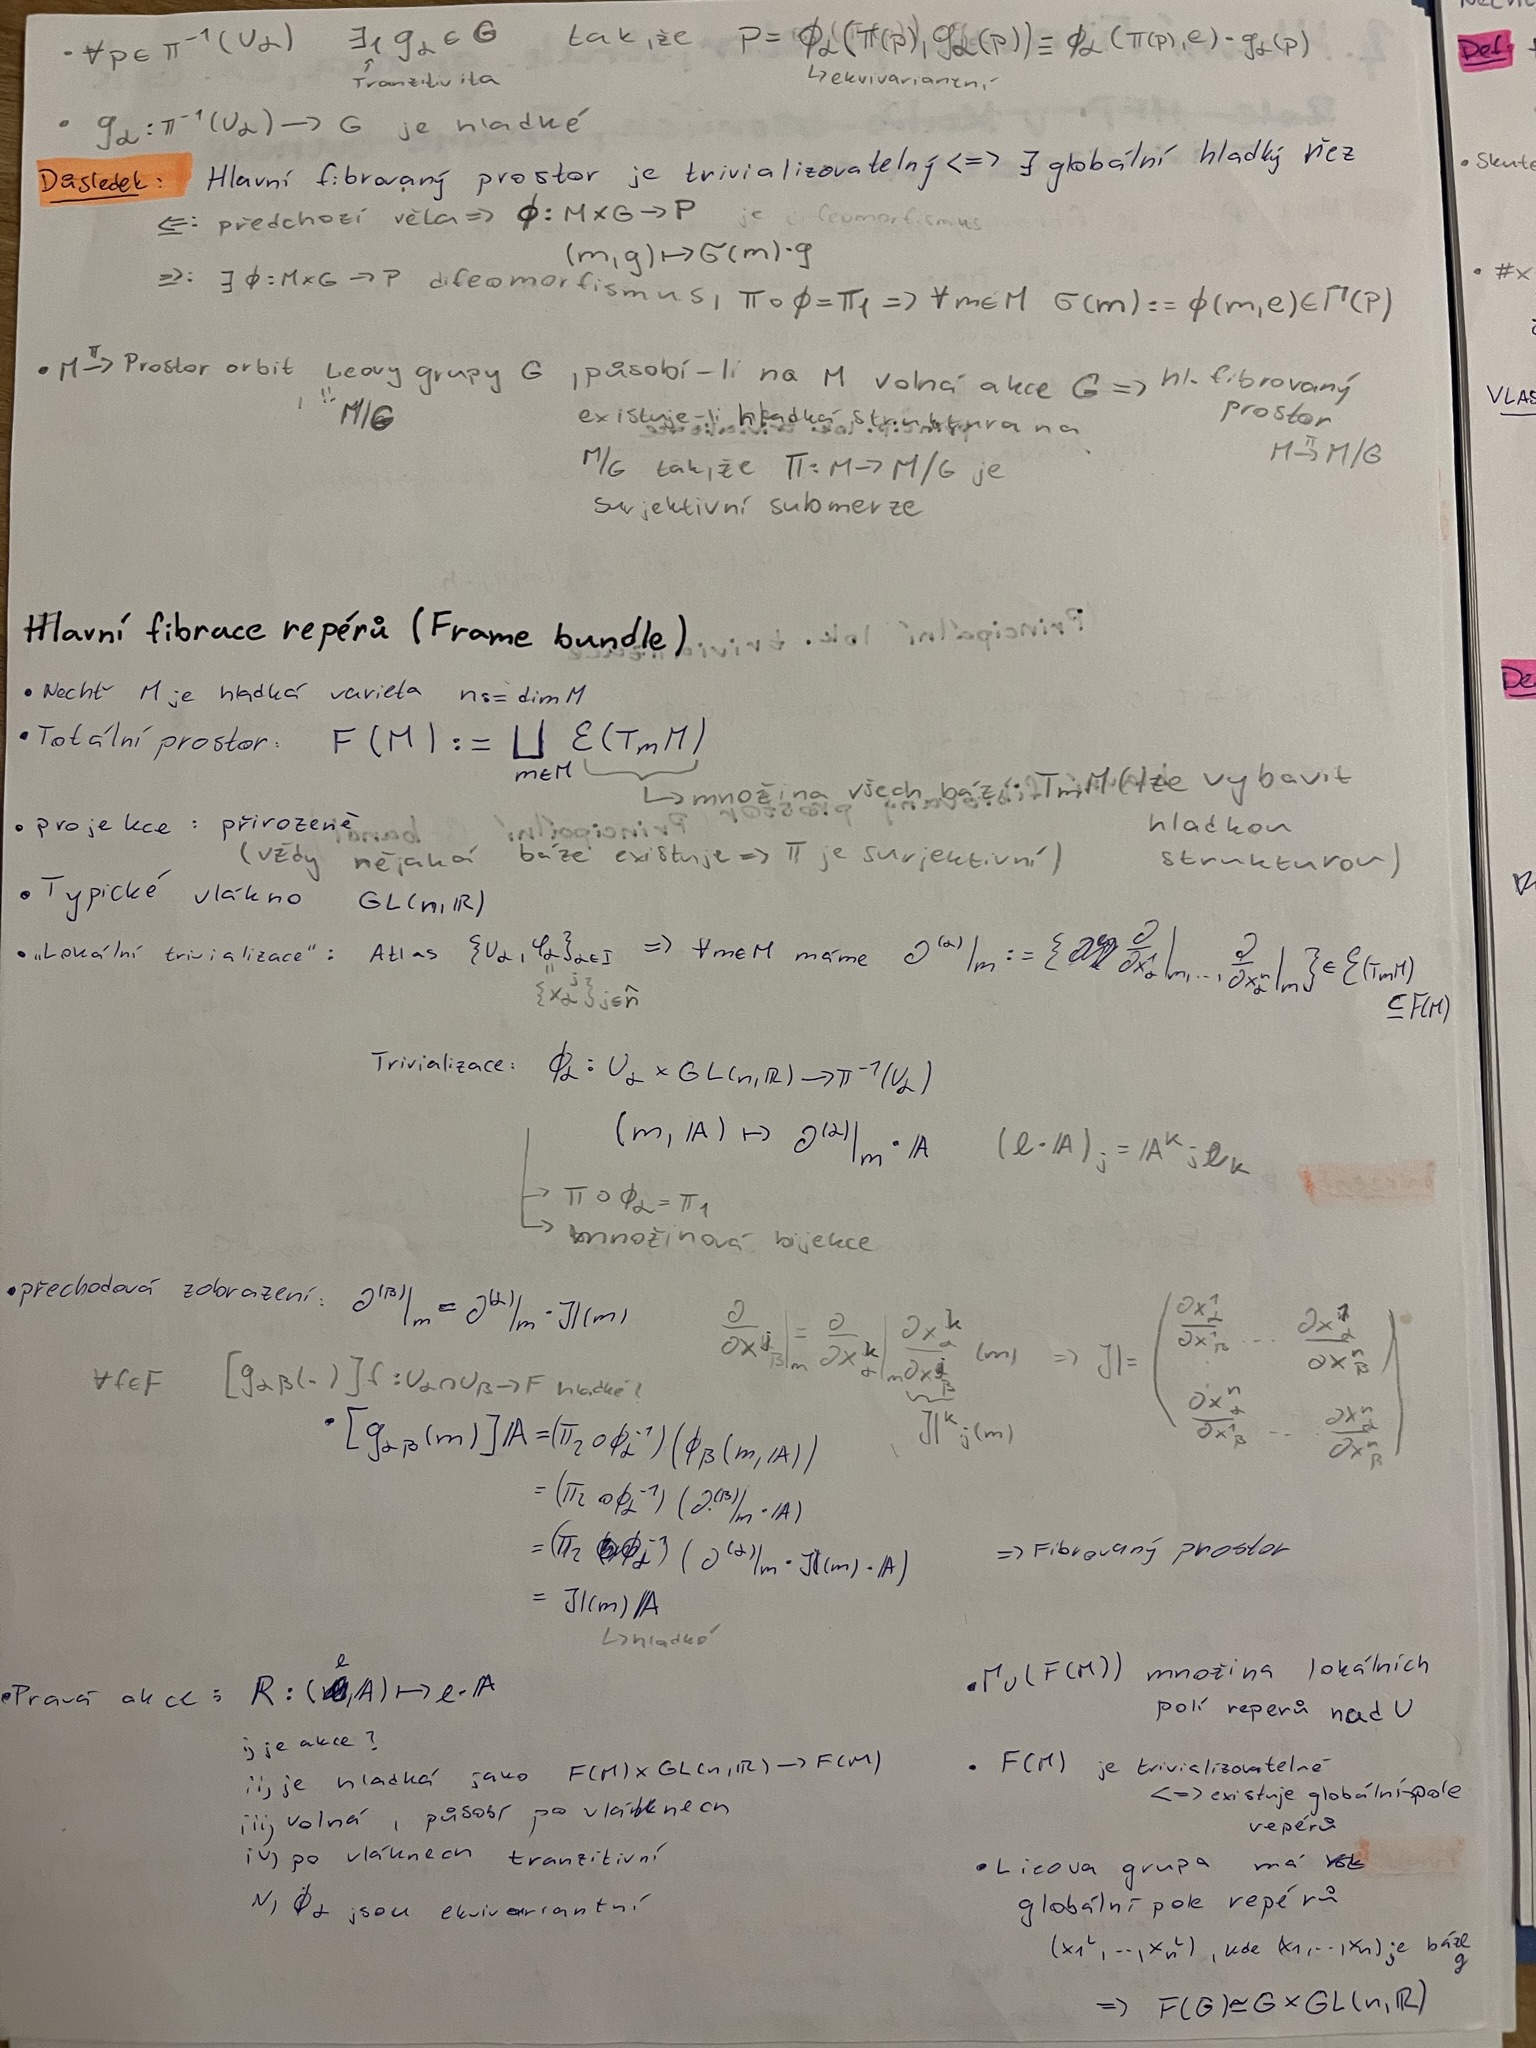 • ∀p∈π⁻¹(U_α) ∃₁ g_α∈G tak, že p = ϕ_α(π(p), g_α(p)) ≡ ϕ_α(π(p), e)·g_α(p)
↑ Tranzitivita ↳ekvivariantní
• g_α : π⁻¹(U_α) → G je hladké
Důsledek: Hlavní fibrovaný prostor je trivializovatelný <=> ∃ globální hladký řez
⇐: předchozí věta => ϕ: M×G → P je difeomorfismus
(m,g) ↦ σ(m)·g
⇒: ∃ ϕ: M×G → P difeomorfismus, π∘ϕ=π₁ => ∀m∈M σ(m) := ϕ(m,e)∈Γ(P)
• M →^π Prostor orbit Leovy grupy G, působí-li na M volná akce G => hl. fibrovaný
M/G existuje-li hladká struktura na prostor
M/G tak, že π: M → M/G je M →^π M/G
surjektivní submerze
Hlavní fibrace repérů (Frame bundle)
• Nechť M je hladká varieta n:= dim M
• Totální prostor: F(M) := ⊔_{m∈M} ℰ(T_mM)
↳ množina všech bází T_mM (lze vybavit
hladkou
strukturou)
• projekce: přirozeně
(vždy nějaká báze existuje => π je surjektivní)
• Typické vlákno GL(n,ℝ)
• „Lokální trivializace": Atlas {U_α, φ_α}_{α∈I} => ∀m∈M máme ∂^{(α)}|_m := {∂/∂x_α^1|_m, ..., ∂/∂x_α^n|_m} ∈ ℰ(T_mM)
{x_α^j}_{j∈n̂} ⊆ F(M)
Trivializace: ϕ_α : U_α × GL(n,ℝ) → π⁻¹(U_α)
(m, 𝔸) ↦ ∂^{(α)}|_m · 𝔸 (e·𝔸)_j = 𝔸^k_j e_k
→ π∘ϕ_α = π₁
→ množinová bijekce
• přechodová zobrazení: ∂^{(β)}|_m = ∂^{(α)}|_m · 𝕁(m) ∂/∂x_β^j|_m = ∂/∂x_α^k|_m ∂x_α^k/∂x_β^j (m) => 𝕁 = ( ∂x_α^1/∂x_β^1 ... ∂x_α^1/∂x_β^n
∂x_α^n/∂x_β^1 ... ∂x_α^n/∂x_β^n )
𝕁^k_j(m)
∀f∈F [g_{αβ}(-)]f : U_α∩U_β → F hladké?
• [g_{αβ}(m)]𝔸 = (π₂∘ϕ_α⁻¹)(ϕ_β(m,𝔸))
= (π₂∘ϕ_α⁻¹)(∂^{(β)}|_m · 𝔸)
= (π₂∘ϕ_α⁻¹)(∂^{(α)}|_m · 𝕁(m) · 𝔸) => Fibrovaný prostor
= 𝕁(m)𝔸
↳hladké
• Pravá akce: R: (e,𝔸) ↦ e·𝔸
i, je akce?
ii, je hladká jako F(M)×GL(n,ℝ) → F(M)
iii, volná, působí po vláknech
iv, po vláknech tranzitivní
v, ϕ_α jsou ekvivariantní
• Γ_U(F(M)) množina lokálních
polí reperů nad U
• F(M) je trivializovatelné
<=> existuje globální pole
repérů
• Lieova grupa má
globální pole repérů
(x₁^L, .., x_n^L), kde (x₁, .., x_n) je báze
g
=> F(G) ≃ G×GL(n,ℝ)
Def:
• Skute
• #x
VLAS
De